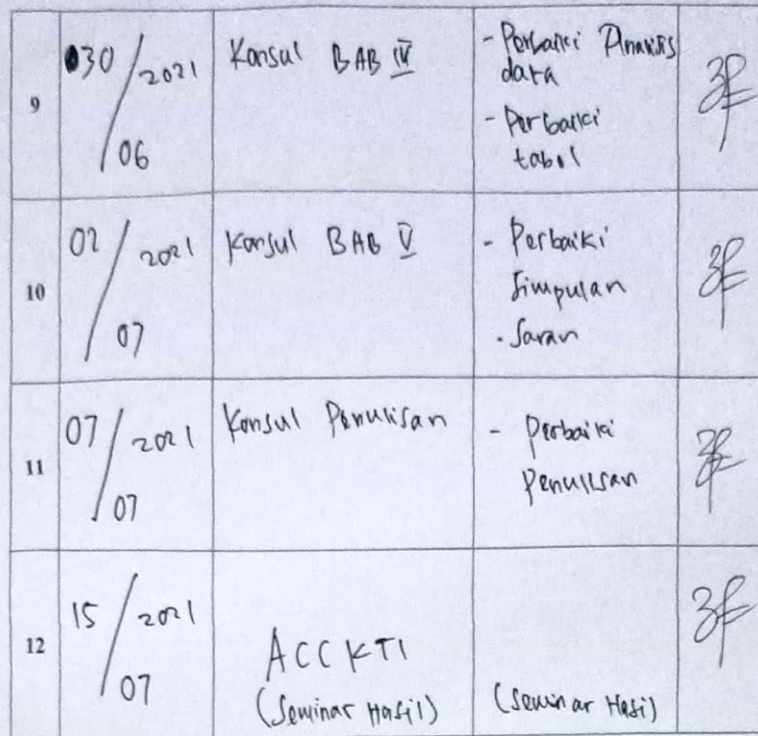 9
30/06 2021
Konsul BAB IV
- Perbaiki Analisis
data
- Perbaiki
tabel
10
02/07 2021
Konsul BAB V
- Perbaiki
Simpulan
- Saran
11
07/07 2021
Konsul Penulisan
- Perbaiki
Penulisan
12
15/07 2021
ACC KTI
(Seminar Hasil)
(Seminar Hasil)